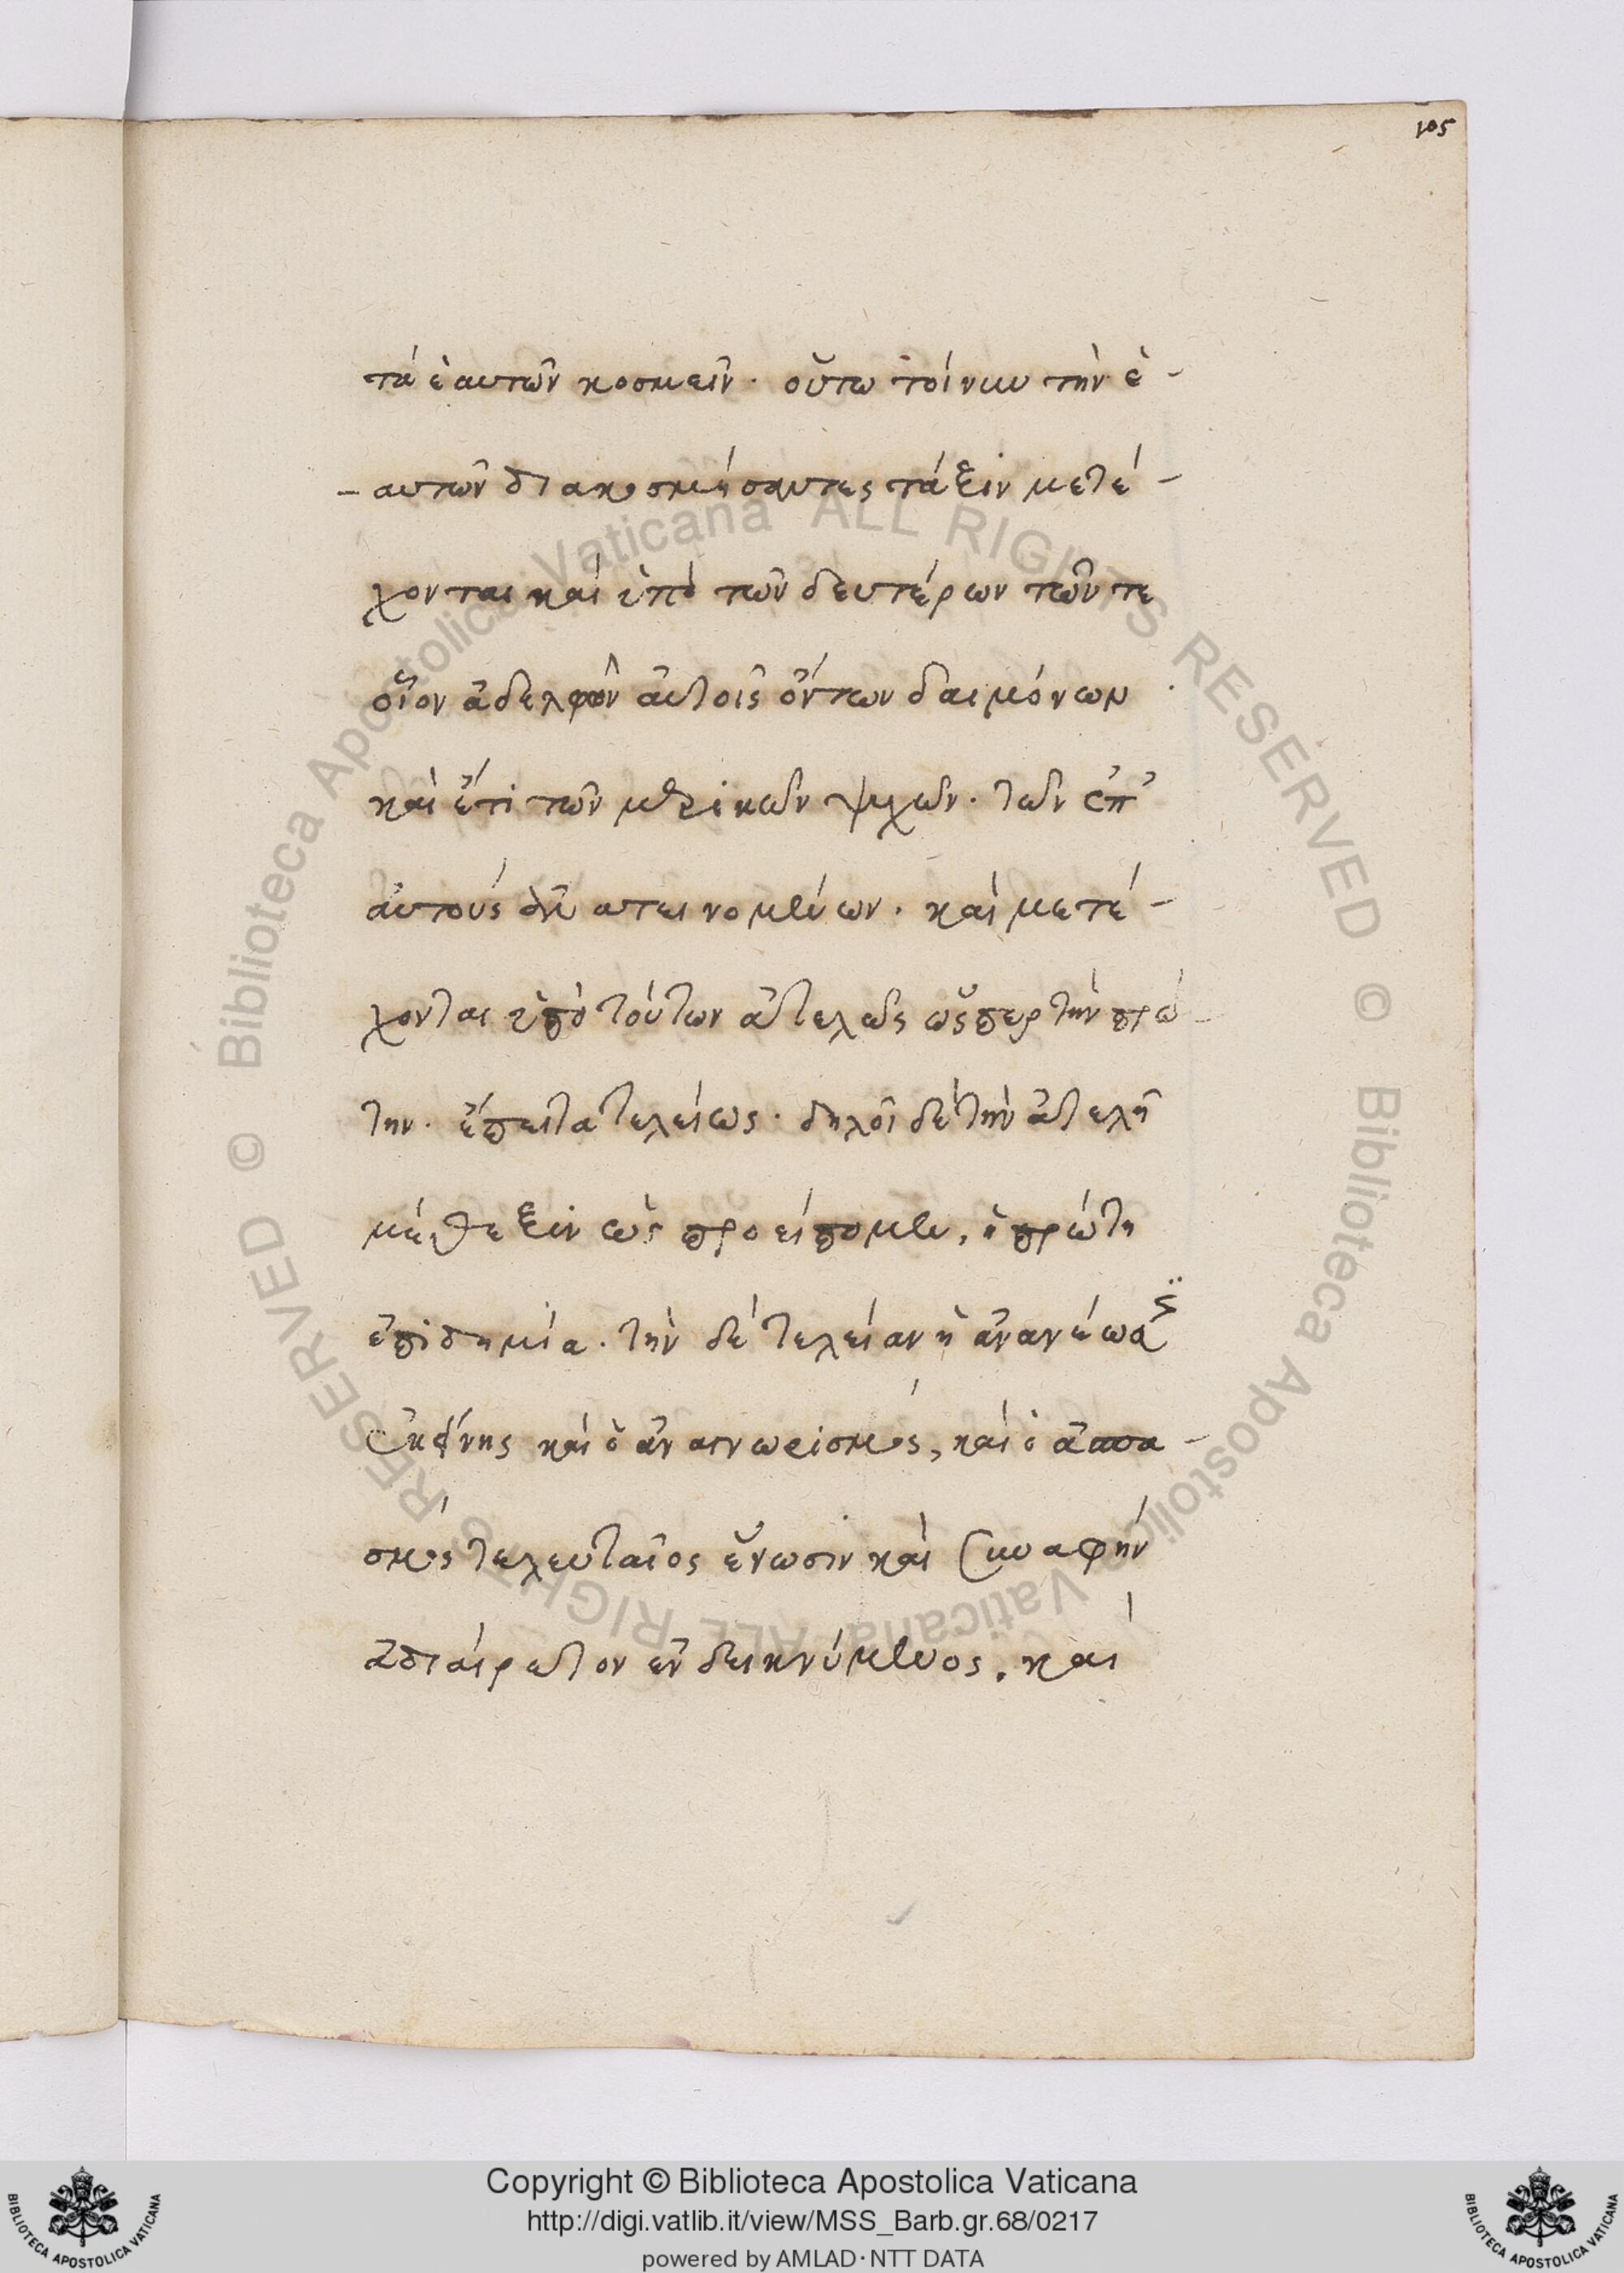 105
τά ἑαυτῶν κοσμεῖν. οὕτω τοίνυν τὴν ἑ-
-αυτῶν διακοσμήσαντες τάξιν μετέ-
χονται καὶ ὑπὸ τῶν δευτέρων τῶν τε
οἷον ἀδελφῶν αὐτοῖς ὄντων δαιμόνων
καὶ ἔτι τῶν μερικῶν ψυχῶν. τῶν ἐπ'
αὐτοὺς ἀνατεινομένων. καὶ μετέ-
χονται ὑπὸ τούτων ἀτελῶς ὥσπερ τὴν πρώ-
την. ἔπειτα τελείως. δηλοῖ δὲ τὴν ἀτελῆ
μέθεξιν ὡς προείπομεν, ἡ πρώτη
ἐπιδημία. τὴν δὲ τελείαν ἡ ἀνανέωσις
ἐκείνης καὶ ὁ ἀναγνωρισμός, καὶ ὁ ἀσπα-
σμὸς τελευταῖος ἕνωσιν καὶ συναφὴν
ἀδιαίρετον ἐνδεικνύμενος. καὶ
Biblioteca Apostolica Vaticana ALL RIGHTS RESERVED © Biblioteca Apostolica Vaticana ALL RIGHTS RESERVED ©
Copyright © Biblioteca Apostolica Vaticana
http://digi.vatlib.it/view/MSS_Barb.gr.68/0217
powered by AMLAD·NTT DATA
BIBLIOTECA APOSTOLICA VATICANA
BIBLIOTECA APOSTOLICA VATICANA